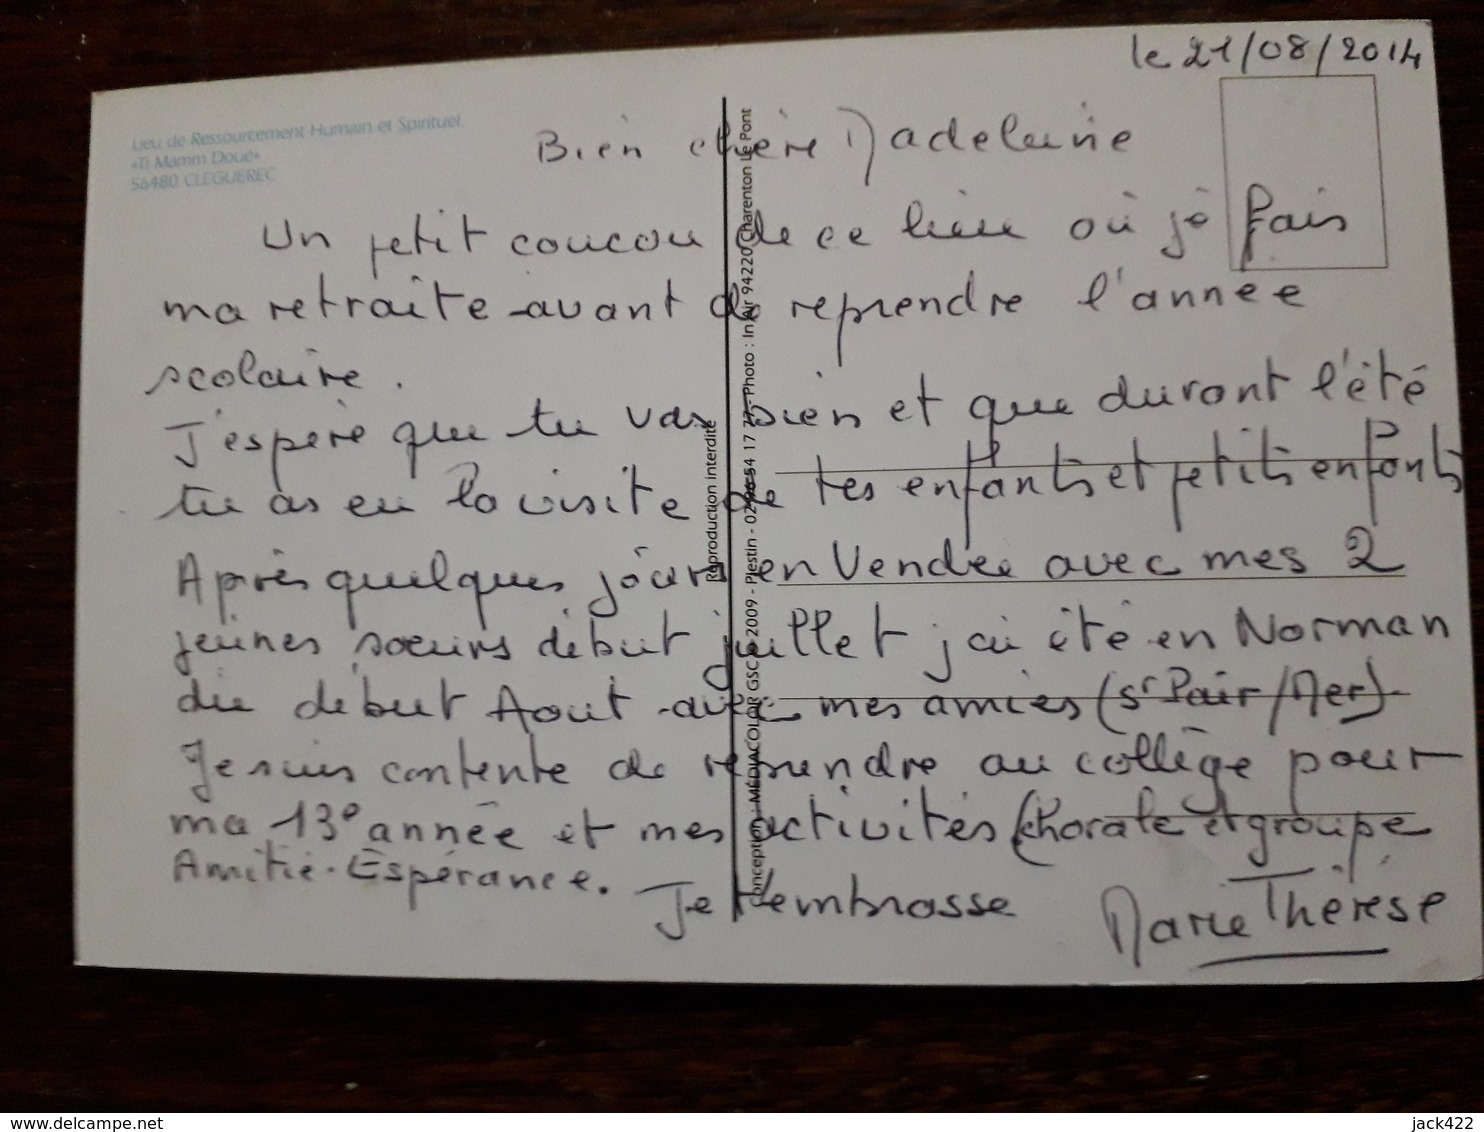 le 21/08/2014
Lieu de Ressourcement Humain et Spirituel
«Ti Mamm Doué»
56480 CLEGUEREC
Bien chère Madeleine
Un petit coucou de ce lieu où je fais
ma retraite avant de reprendre l'année
scolaire.
J'espère que tu vas bien et que durant l'été
tu as eu la visite de tes enfants et petits enfants
Après quelques jours en Vendée avec mes 2
jeunes soeurs début juillet j'ai été en Norman
die début Aout avec mes amies (St Pair/Mer).
Je suis contente de reprendre au collège pour
ma 13e année et mes activités (chorale et groupe
Amitié-Espérance.
Je t'embrasse
Marie Thérèse
Reproduction interdite
Conception : MEDIACOLOR GSC © 2009 - Plestin - 02 96 54 17 77 - Photo : In Air 94220 Charenton Le Pont
delcampe.net
jack422